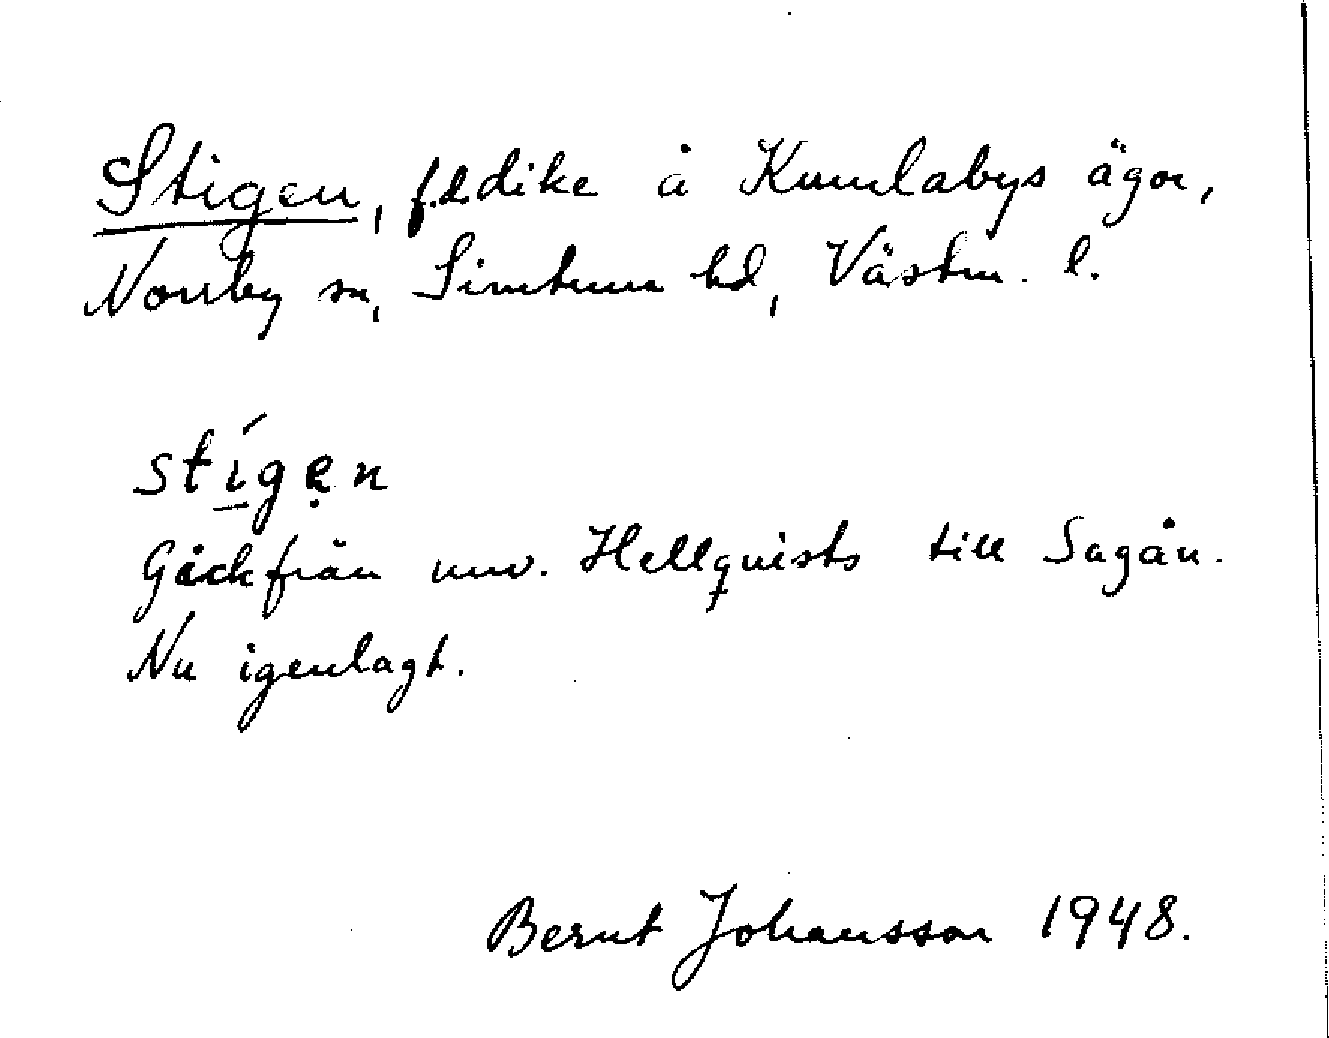 Stigen, f.d. dike å Kumlabys ägor,
Norrby sn, Simtuna hd, Västm. l.
stígẹn
Gick från nuv. Hellquists till Sagån.
Nu igenlagt.
Bernt Johansson 1948.